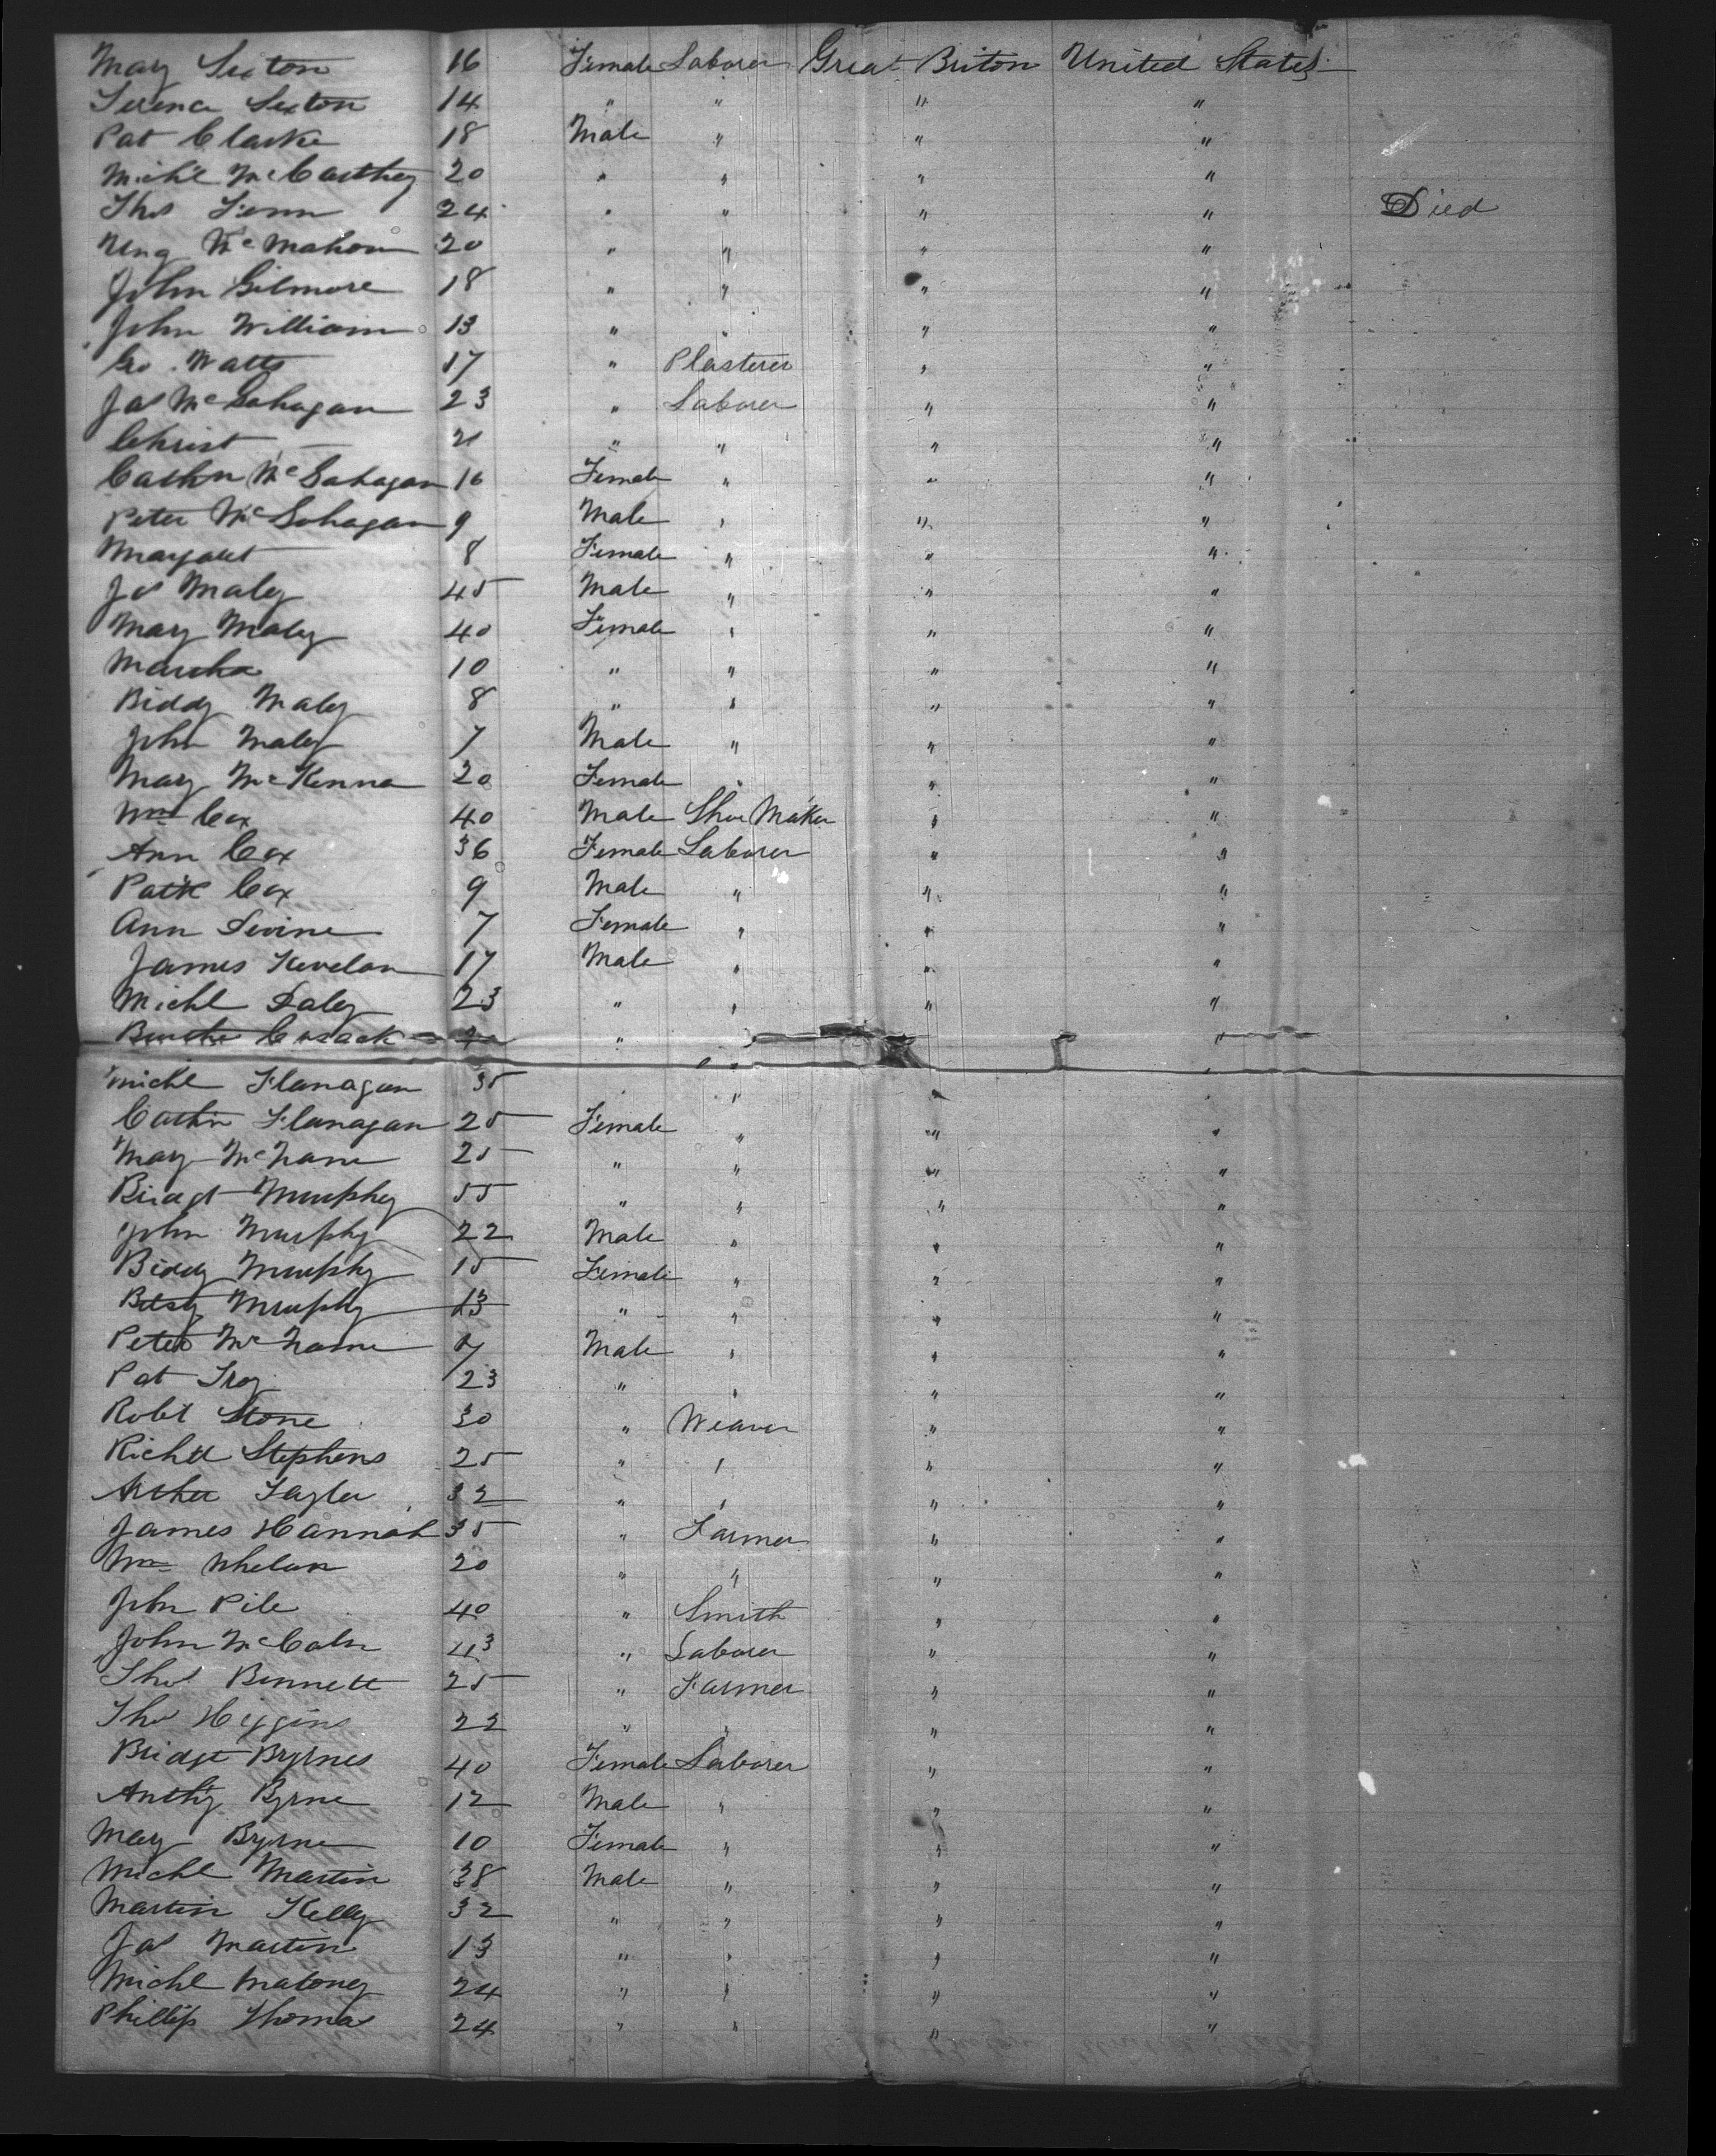 Mary Sexton 16 Female Laborer Great Briton United States
Terence Sexton 14 " " " "
Pat Clarke 18 Male " " "
Mich'l McCarthey 20 " " " "
Thos Fenn 24 " " " " Died
McMahon 20 " " " "
John Gilmore 18 " " " "
John William 13 " " " "
Geo. Watts 17 " Plasterer " "
Jas McGahagan 23 " Laborer " "
Christ — 21 " " " "
Cathn McGahagan 16 Female " " "
Peter McGohagan 9 Male " " "
Margaret 8 Female " " "
Jas Maley 45 Male " " "
Mary Maley 40 Female " " "
Martha 10 " " " "
Biddy Maley 8 " " " "
John Maley 7 Male " " "
Mary McKenna 20 Female " " "
Wm Cox 40 Male Shoe Maker " "
Ann Cox 36 Female Laborer " "
Patk Cox 9 Male " " "
Ann Levine 7 Female " " "
James Kevelan 17 Male " " "
Michl Daley 23 " " " "
Cusack " "
Michl Flanagan 35 " " "
Cathn Flanagan 25 Female " " "
Mary McName 25 " " " "
Bridgt Murphey 55 " " " "
John Murphy 22 Male " " "
Biddy Murphy 15 Female " " "
Betsy Murphy 13 " " " "
Peter McName 7 Male " " "
Pat Troy 23 " " " "
Robt Stone 30 " Weaver " "
Richd Stephens 25 " " " "
Arther Tayler 32 " " " "
James Hannah 35 " Farmer " "
Wm Whelan 20 " " " "
John Pile 40 " Smith " "
John McCabe 43 " Laborer " "
Thos Bennett 25 " Farmer " "
Thos Higgins 22 " " " "
Bridgt Byrnes 40 Female Laborer " "
Anthy Byrne 12 Male " " "
Mary Byrne 10 Female " " "
Michl Martin 38 Male " " "
Martin Kelley 32 " " " "
Jas Martin 13 " " " "
Michl Maloney 24 " " " "
Phillip Thomas 24 " " " "